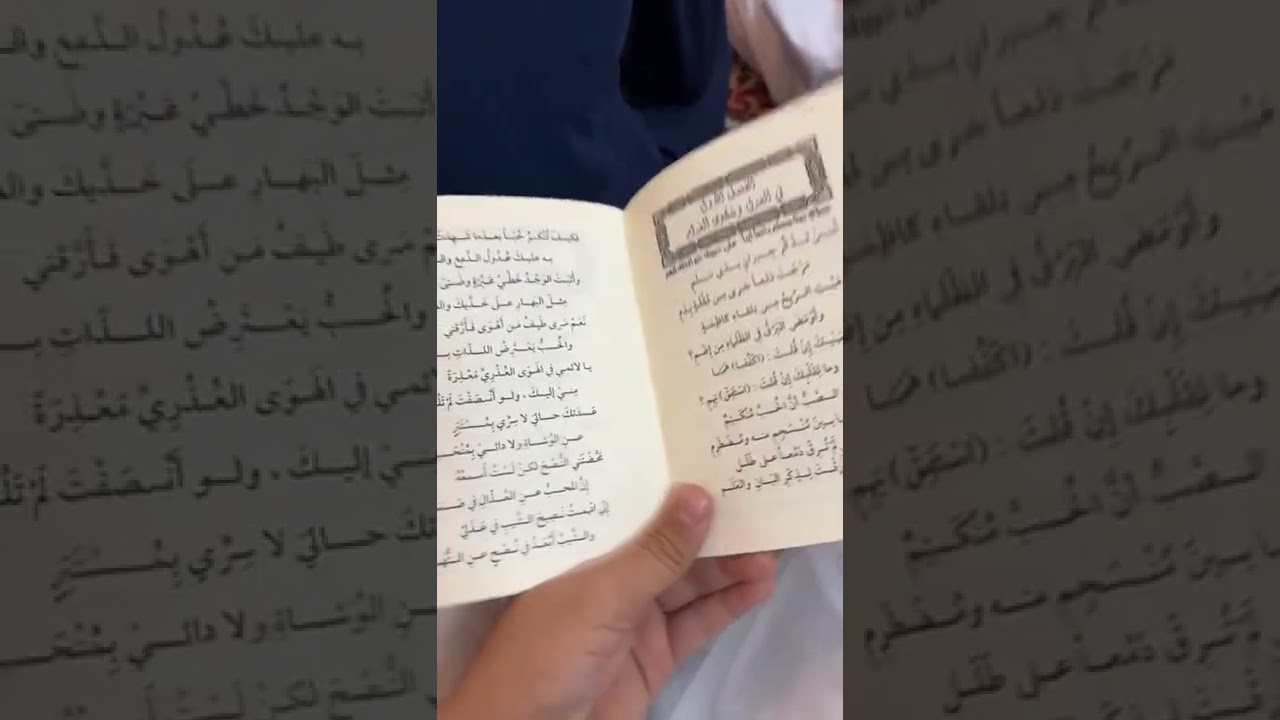 الفصل الأول
في الغزل وشكوى الغرام
أمن تذكر جيران بذي سلم
مزجت دمعاً جرى من مقلة بدم
الريح من تلقاء كاظمة
وأومض البرق في الظلماء من إضم؟
إن قلت: (اكففا) همتا
وما لقلبك إن قلت: (استفق) يهم؟
الصب أن الحب منكتم
ما بين منسجم منه ومضطرم
لم ترق دمعاً على طلل
أرقت لذكر البان والعلم
فكيف تنكر حباً بعدما شهدت
به عليك عدول الدمع
وأثبت الوجد خطي عبرة وضنى
مثل البهار على خديك
نعم سرى طيف من أهوى فأرقني
والحب يعترض اللذات
يا لائمي في الهوى العذري معذرة
مني إليك، ولو أنصفت لم
عدتك حالي لا سري بمستتر
عن الوشاة ولا دائي
محضتني النصح لكن لست أسمعه
إن المحب عن العذال في
إني اتهمت نصيح الشيب في عذلي
والشيب أبعد في نصح عن